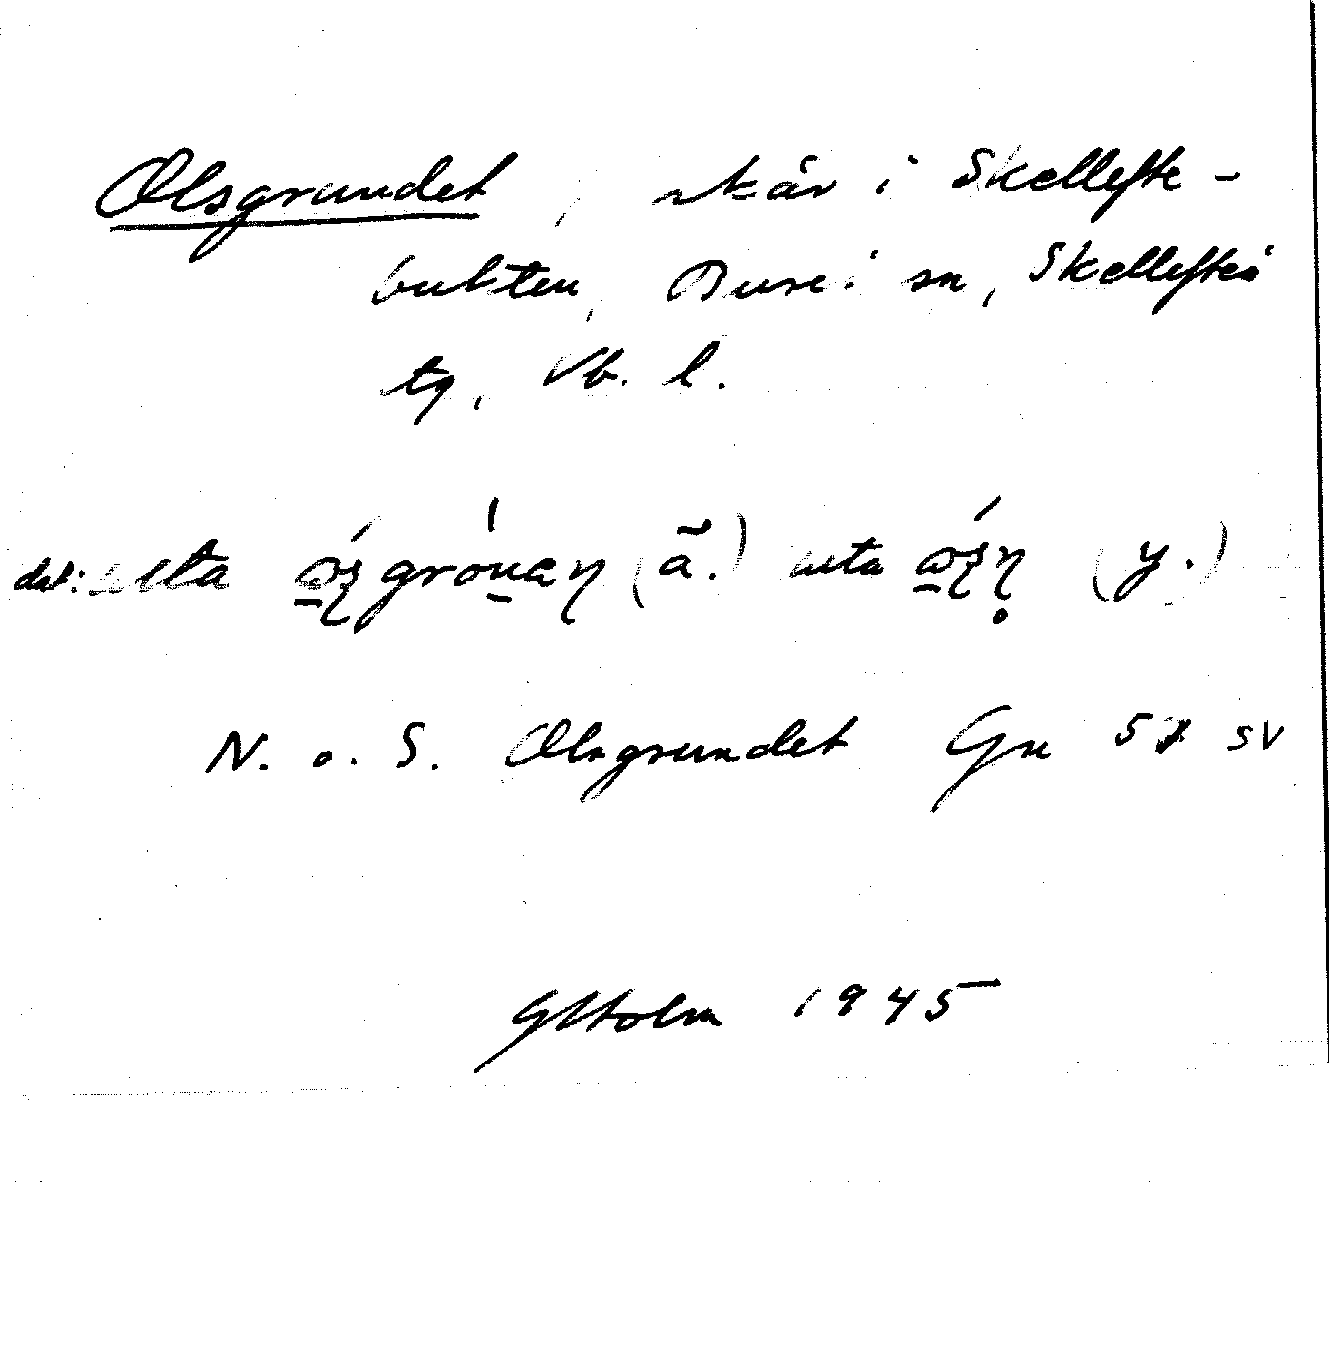 Olsgrundet, skär i Skellefte-
bukten, Bureå sn, Skellefteå
tg, Vb. l.
dat: uta (ä.) uta (y.)
N. o. S. Olsgrundet Gn 57 SV
GHolm 1945